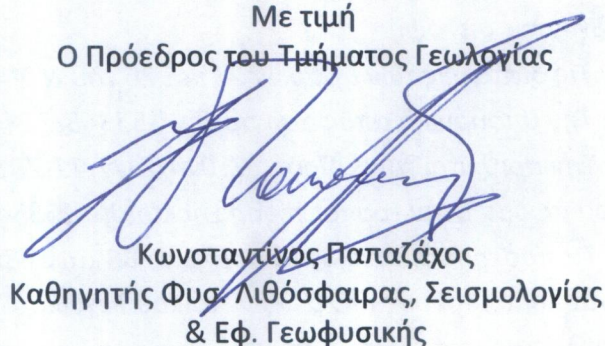 Με τιμή
Ο Πρόεδρος του Τμήματος Γεωλογίας
Κωνσταντίνος Παπαζάχος
Καθηγητής Φυσ. Λιθόσφαιρας, Σεισμολογίας
& Εφ. Γεωφυσικής